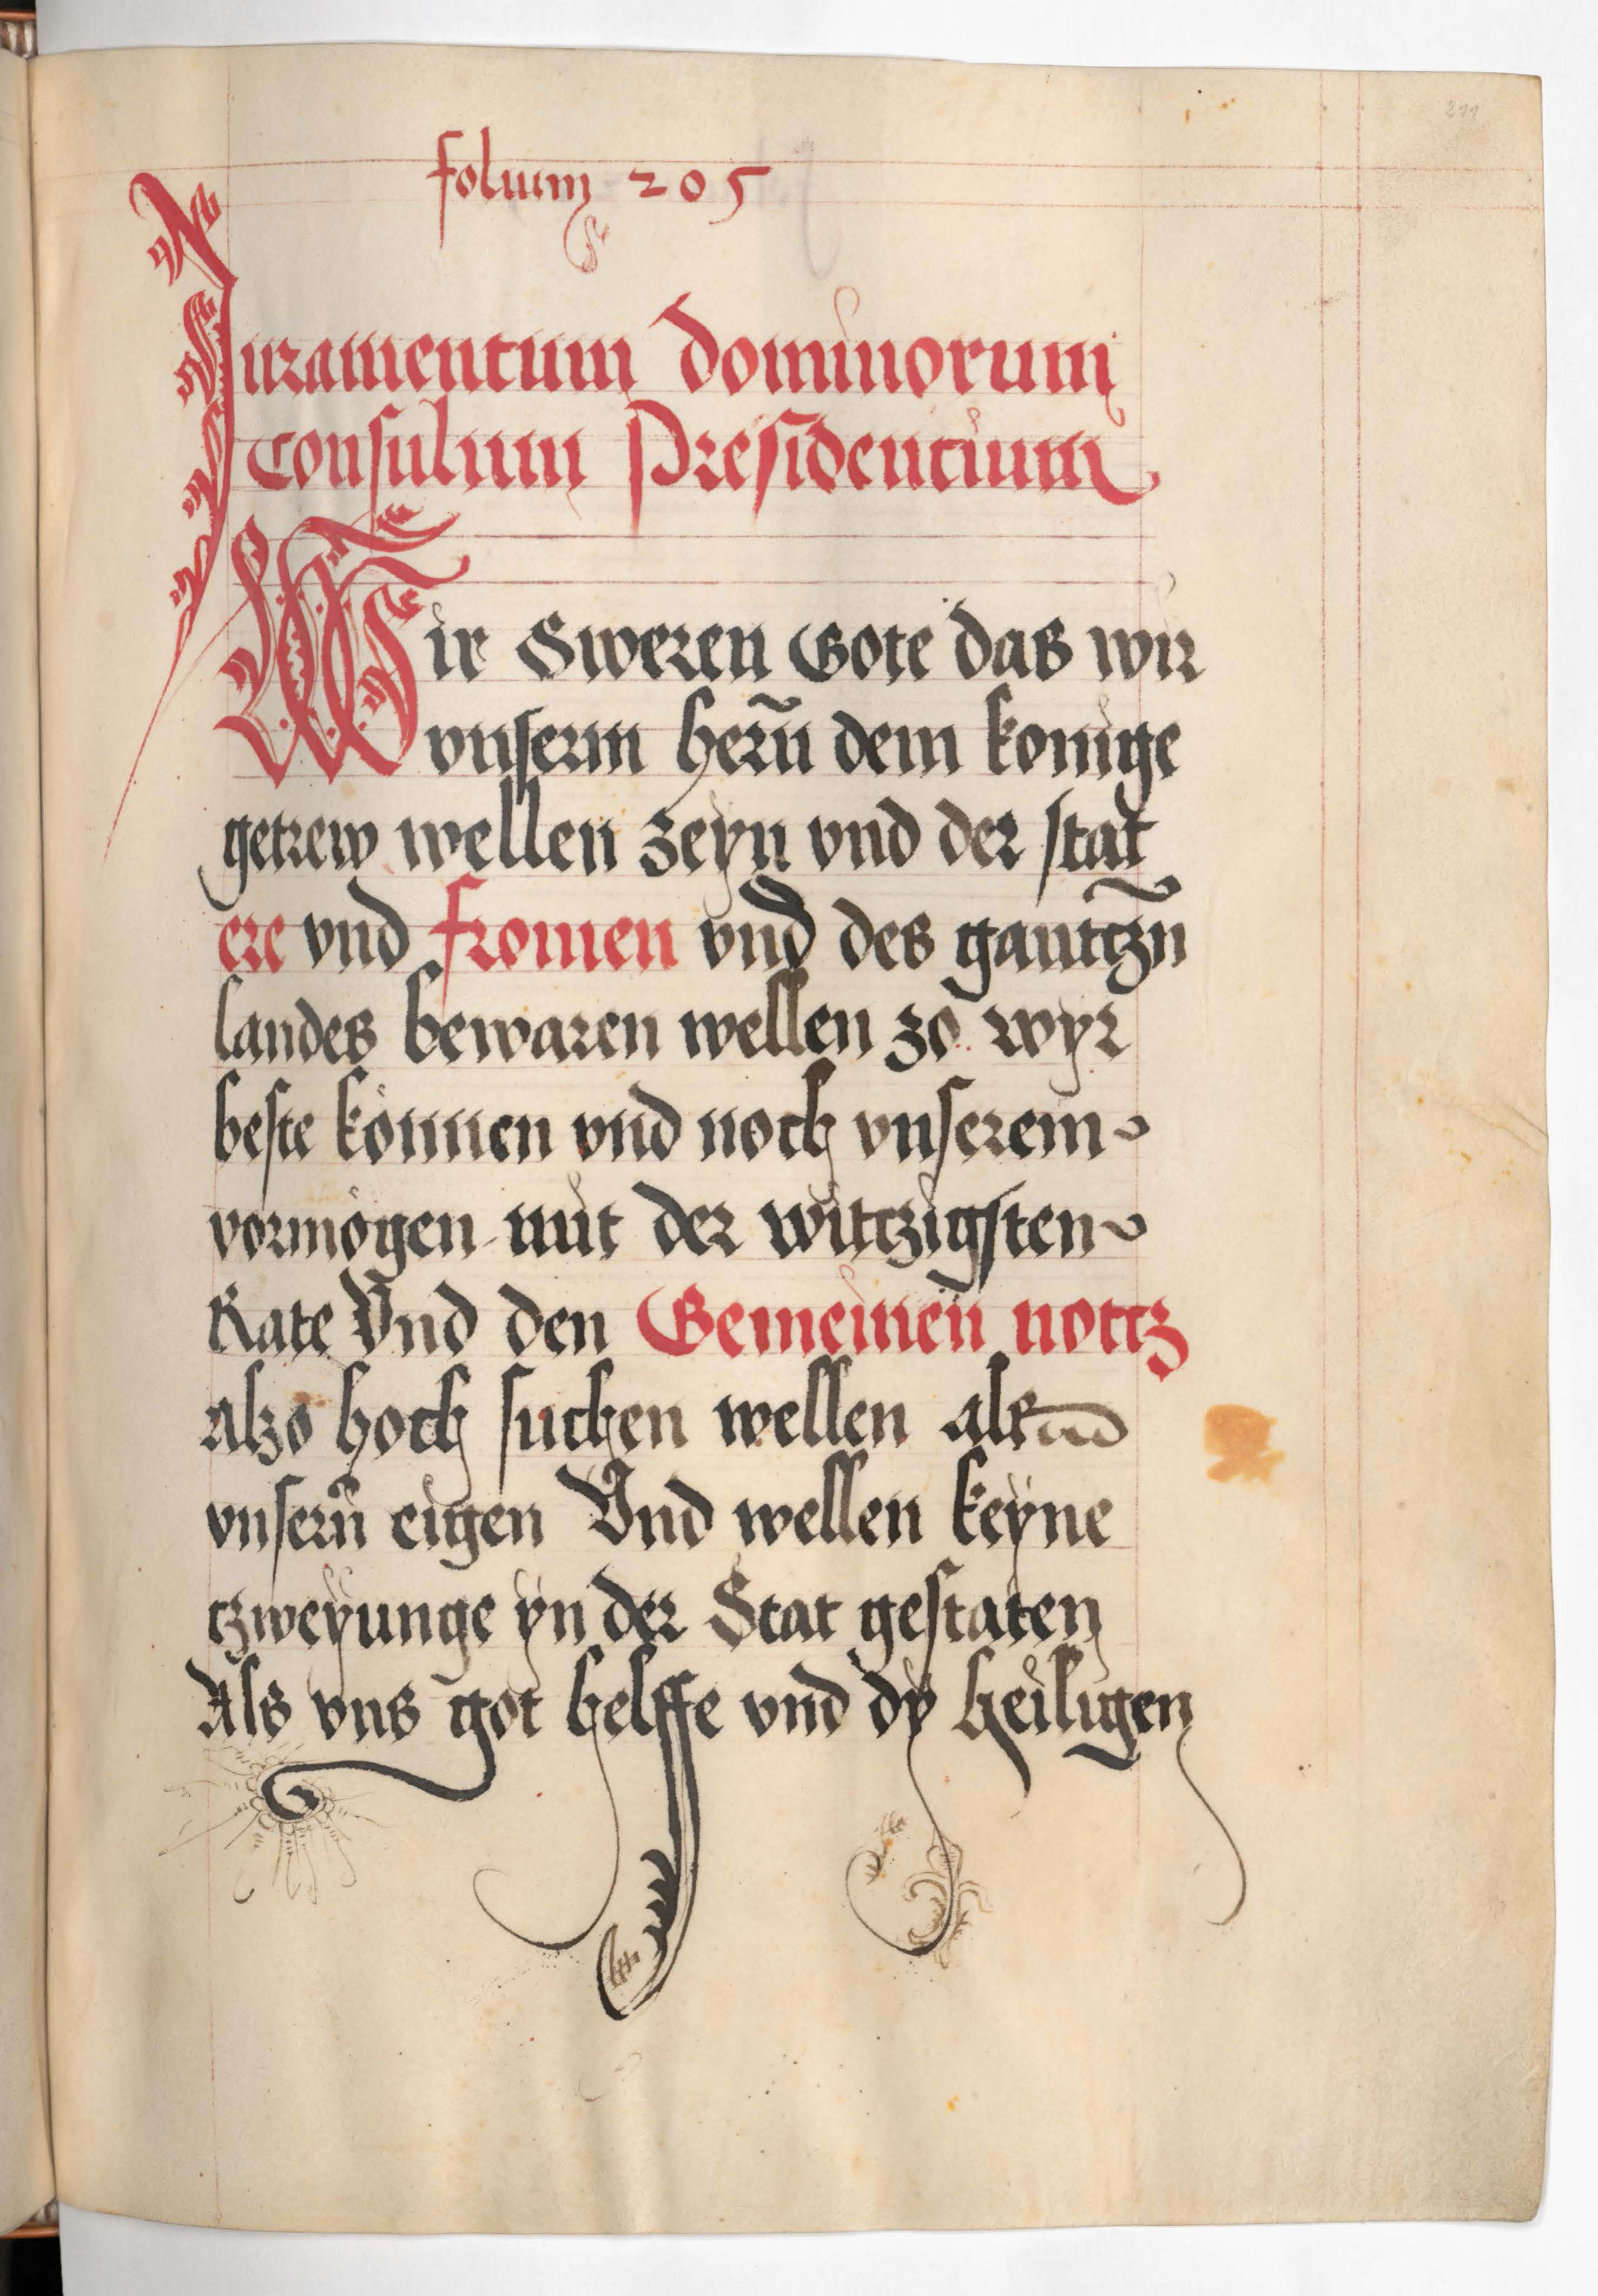 211
folium 205
Juramentum dominorum
Consulum Presidencium
Wir Sweren Gote das wir
vnserm herñ dem konige
getrew wellen zeyn vnd der stat
ere vnd fromen vnd des gantczñ
landes bewaren wellen zo wyr
beste können vnd noch vnserem
vormögen mit der witczigsten
Rate Vnd den Gemeinen notcz
alzo hoch suchen wellen als
vnserñ eigen Vnd wellen keyne
tzweyunge yn der Stat gestaten
Als vns got helffe vnd dy heiligen